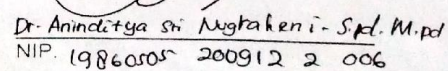 Dr. Aninditya Sri Nugraheni - S.pd. M.pd
NIP. 19860505 200912 2 006